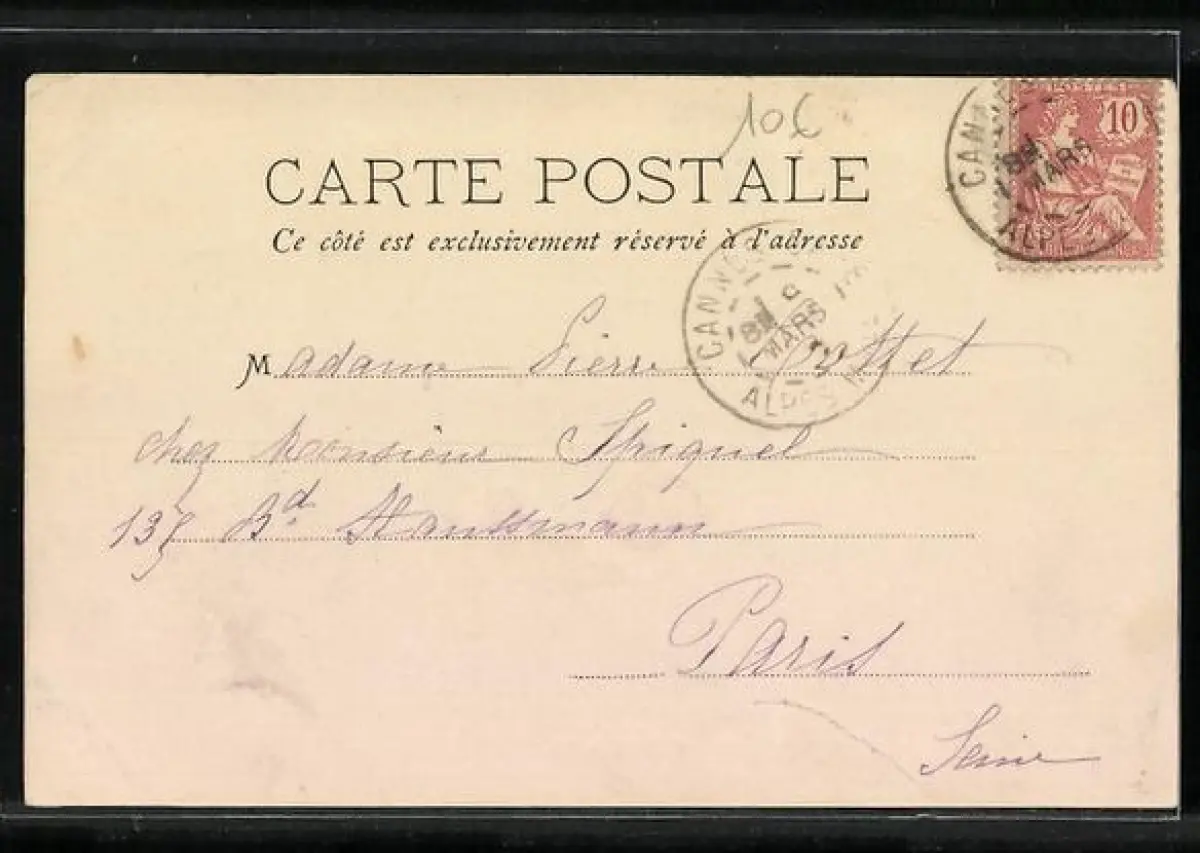 10€
10
CANNES
MARS
ALPES
CARTE POSTALE
Ce côté est exclusivement réservé à l'adresse
CANNES
8E
MARS
ALPES M
Madame Pierre Cottet
chez Monsieur Spiquel
135 Bd Haussmann
Paris
Seine